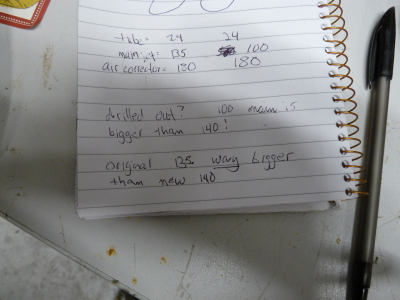 tube = 24 24
main jet = 135 100
air corrector = 180 180
drilled out? 100 main is
bigger than 140!
original 135 way bigger
than new 140